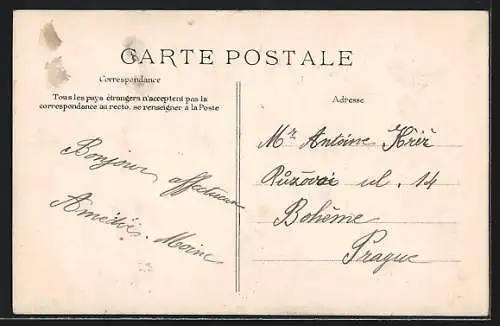 CARTE POSTALE
Correspondance
Tous les pays étrangers n'acceptent pas la
correspondance au recto, se renseigner à la Poste
Adresse
Bonjour affectueux
Amédée Moine
Mr Antoine Kříž
Růžová ul. 14
Bohême
Prague